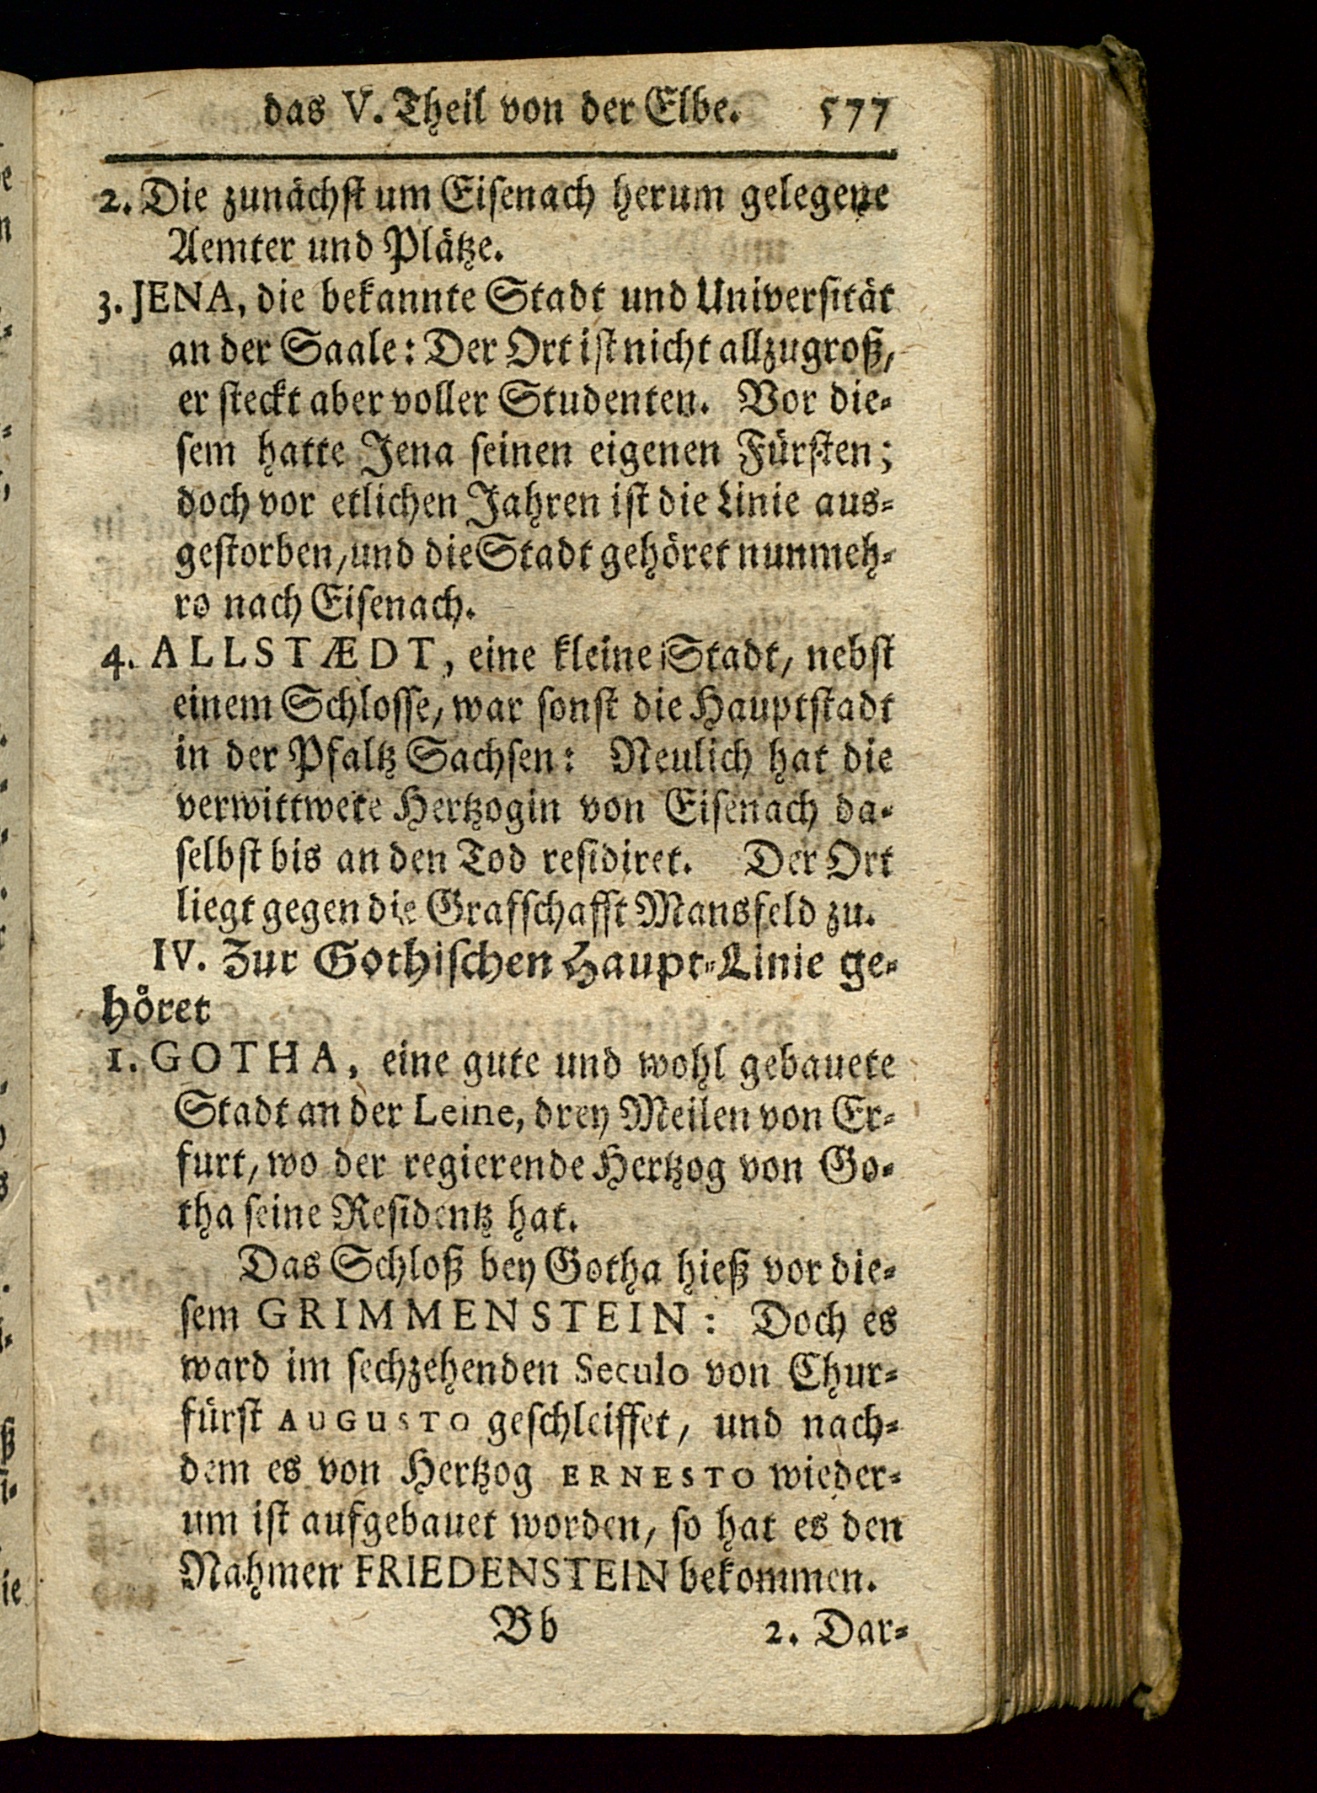 das V. Theil von der Elbe. 577
2. Die zunächst um Eisenach herum gelegene
Aemter und Plätze.
3. JENA, die bekannte Stadt und Universität
an der Saale: Der Ort ist nicht allzugroß,
er steckt aber voller Studenten. Vor die-
sem hatte Jena seinen eigenen Fürsten;
doch vor etlichen Jahren ist die Linie aus-
gestorben, und die Stadt gehöret nunmeh-
ro nach Eisenach.
4. ALLSTÆDT, eine kleine Stadt, nebst
einem Schlosse, war sonst die Hauptstadt
in der Pfaltz Sachsen: Neulich hat die
verwittwete Hertzogin von Eisenach da-
selbst bis an den Tod residiret. Der Ort
liegt gegen die Grafschafft Mansfeld zu.
IV. Zur Gothischen Haupt-Linie ge-
höret
1. GOTHA, eine gute und wohl gebauete
Stadt an der Leine, drey Meilen von Er-
furt, wo der regierende Hertzog von Go-
tha seine Residentz hat.
Das Schloß bey Gotha hieß vor die-
sem GRIMMENSTEIN: Doch es
ward im sechzehenden Seculo von Chur-
fürst AUGUSTO geschleiffet, und nach-
dem es von Hertzog ERNESTO wieder-
um ist aufgebauet worden, so hat es den
Nahmen FRIEDENSTEIN bekommen.
Bb 2. Dar-